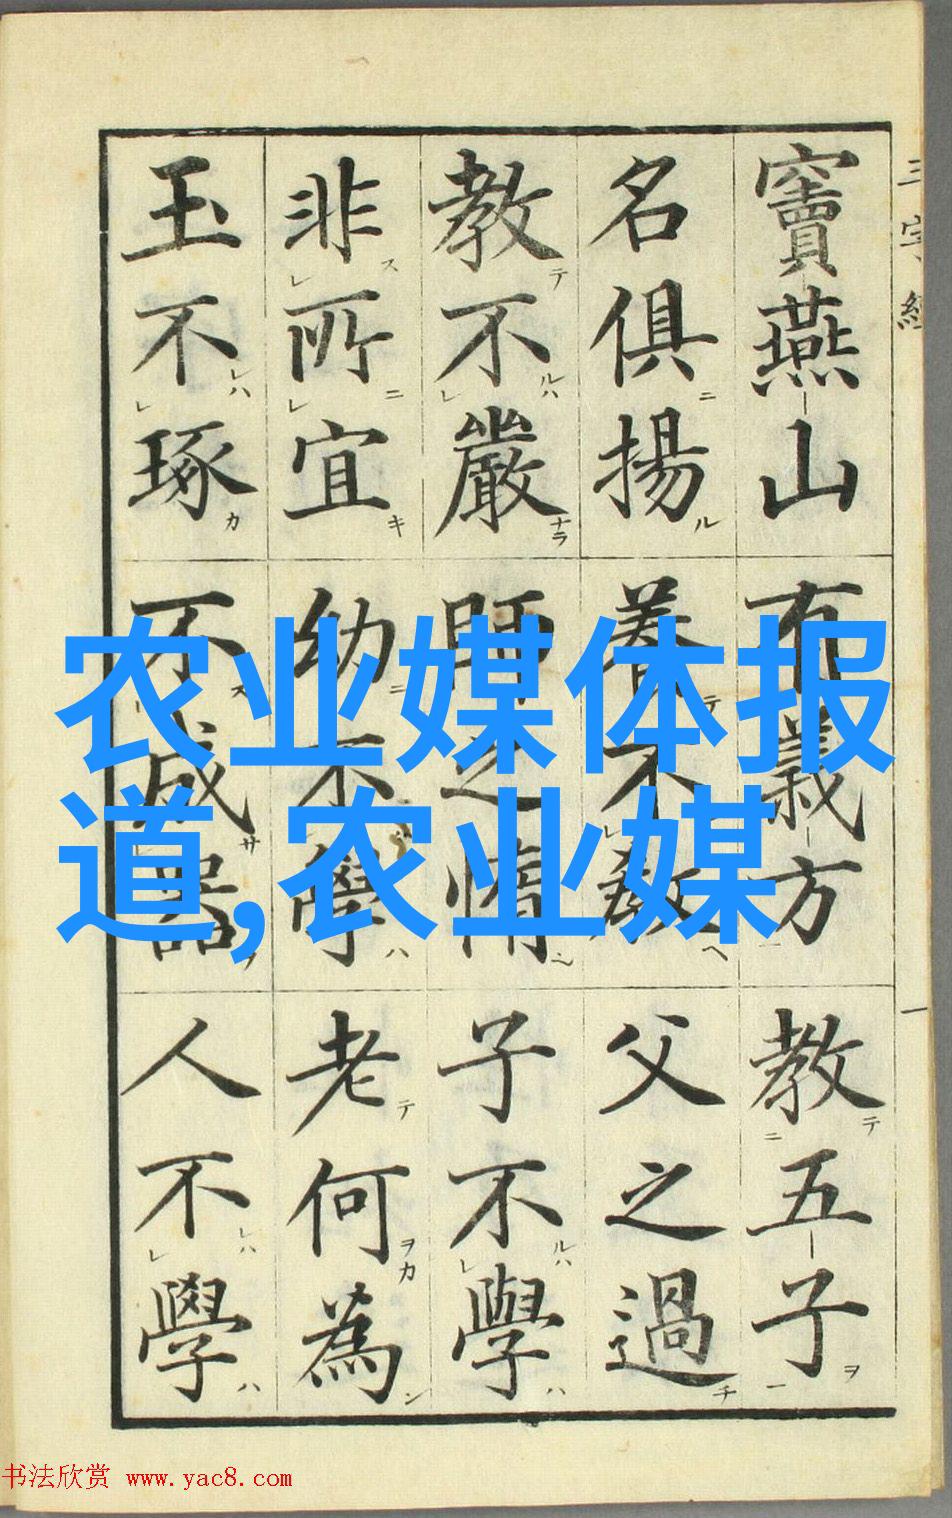 三字經
一
竇燕山有義方教五子
名俱揚養不教父之過
教不嚴師之惰子不學
非所宜幼不學老何為
玉不琢不成器人不學
农业媒体报
道,农业媒
书法欣赏 www.yac8.com